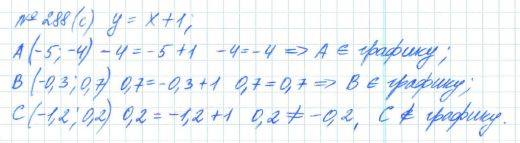 № 288 (с) y = x + 1;
A (-5; -4) -4 = -5 + 1 -4 = -4 => A ∈ графику;
B (-0,3; 0,7) 0,7 = -0,3 + 1 0,7 = 0,7 => B ∈ графику;
C (-1,2; 0,2) 0,2 = -1,2 + 1 0,2 ≠ -0,2, C ∉ графику.